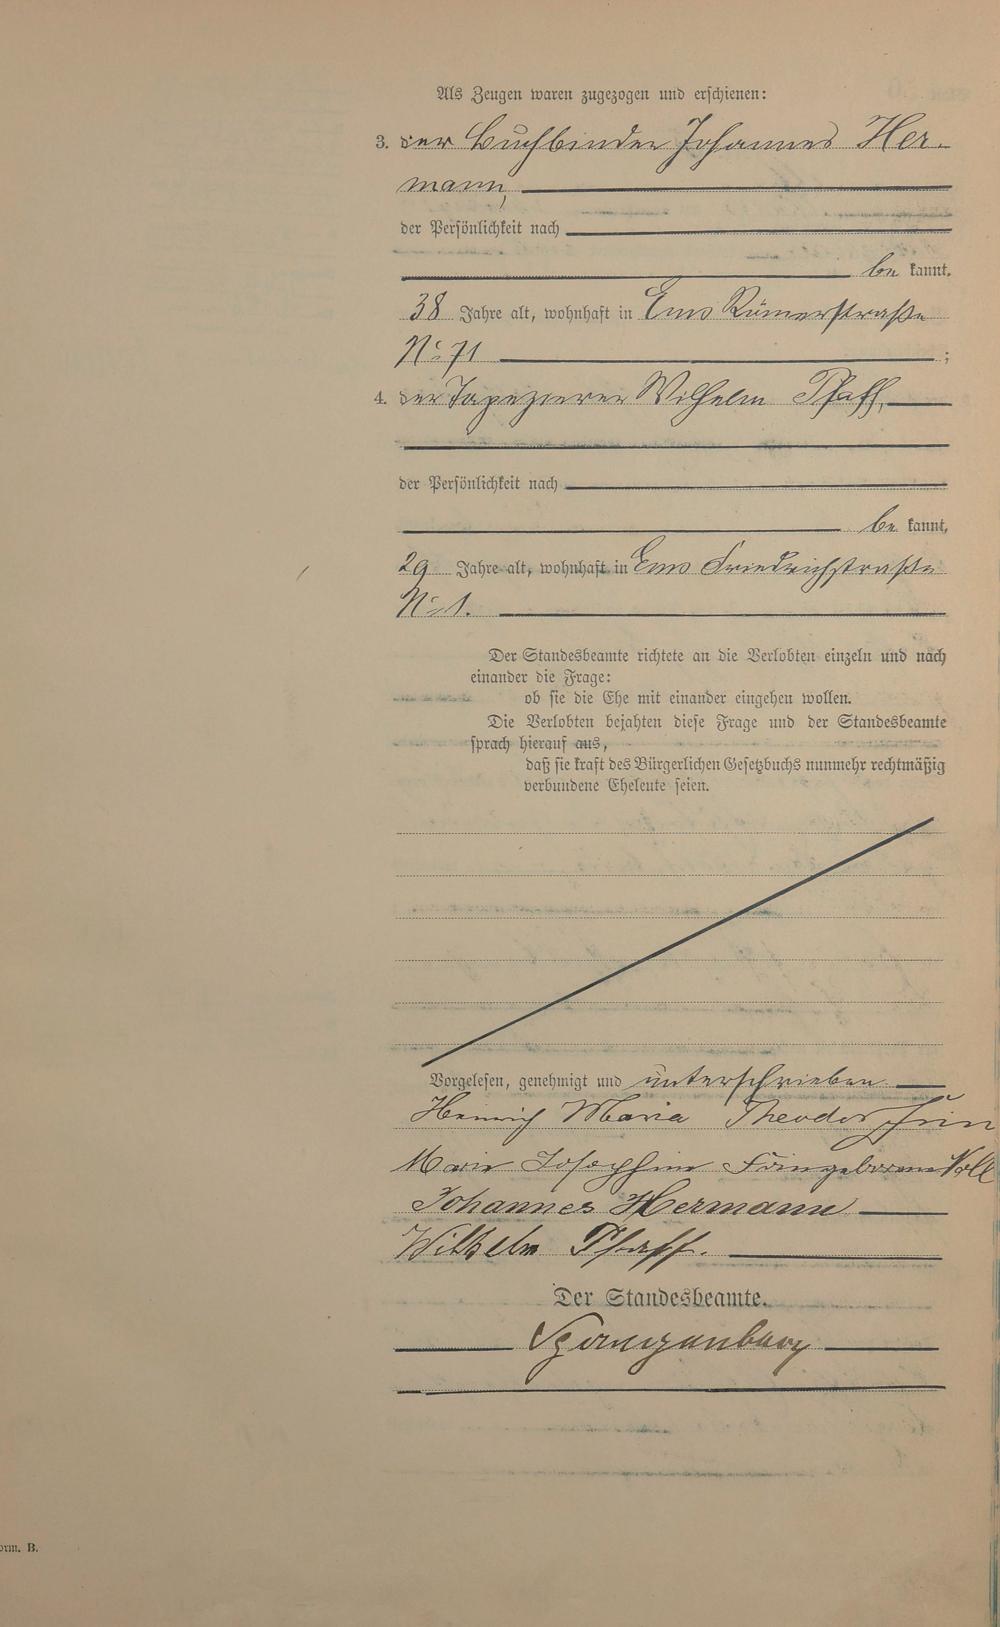 Als Zeugen waren zugezogen und erschienen:
3. der Buchbinder Johannes Her-
mann,
der Persönlichkeit nach
be kannt,
38 Jahre alt, wohnhaft in Ems Römerstraße
No 71 ;
4. der Tapezierer Wilhelm Pfaff,
der Persönlichkeit nach
be kannt,
29 Jahre alt, wohnhaft in Ems Friedrichstraße
No 1.
Der Standesbeamte richtete an die Verlobten einzeln und nach
einander die Frage:
ob sie die Ehe mit einander eingehen wollen.
Die Verlobten bejahten diese Frage und der Standesbeamte
sprach hierauf aus,
daß sie kraft des Bürgerlichen Gesetzbuchs nunmehr rechtmäßig
verbundene Eheleute seien.
Vorgelesen, genehmigt und unterschrieben
Heinrich Maria Theodor
Marie Josephine geborene Noll
Johannes Hermann
Wilhelm Pfaff.
Der Standesbeamte.
Spangenberg
orm. B.